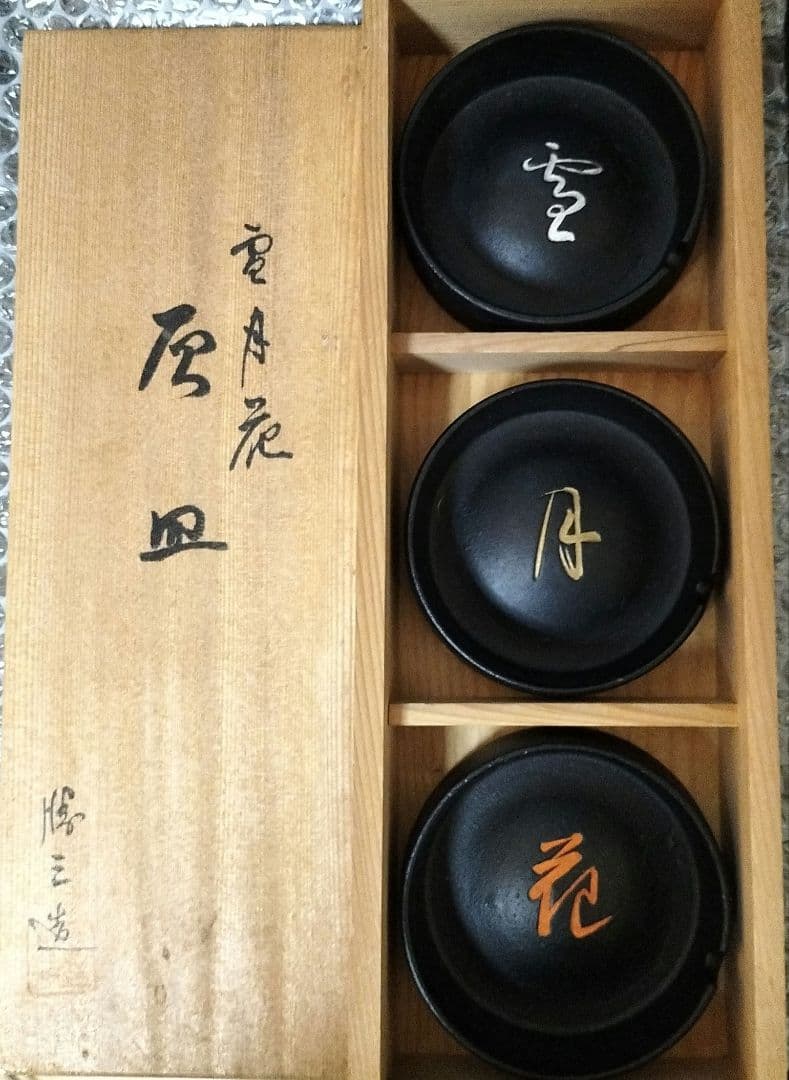 雪月花
灰皿
勝三造
雪
月
花